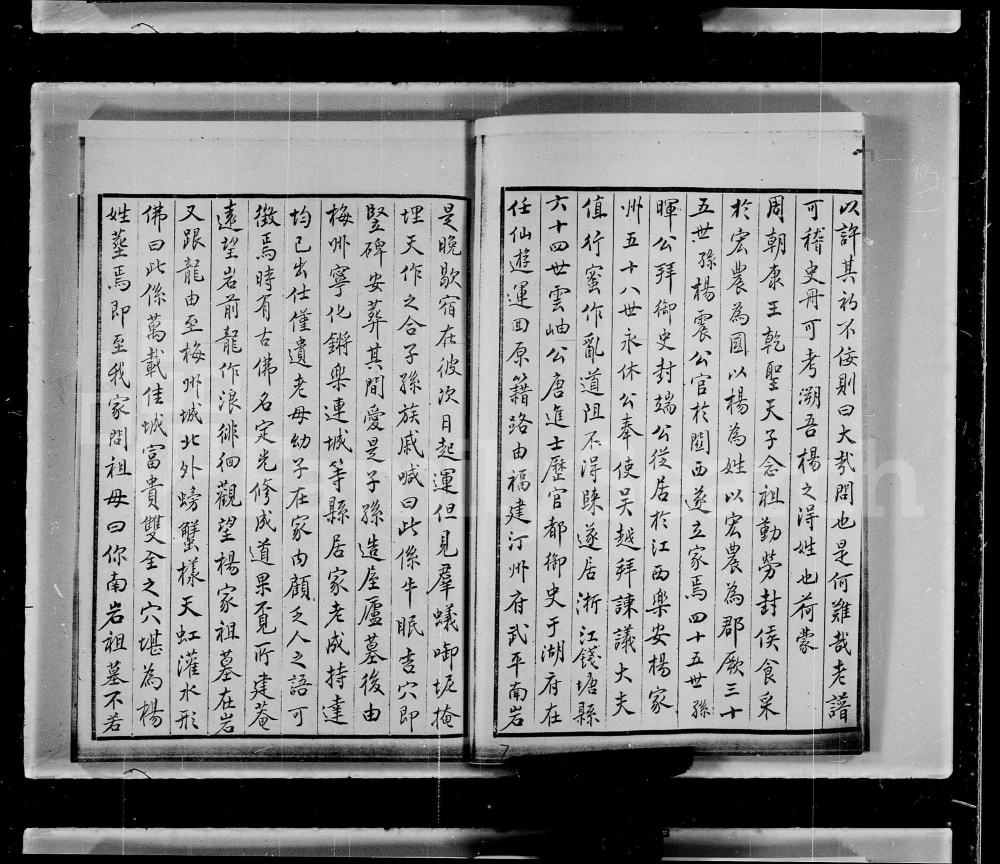 以許其初不佞則曰大哉問也是何難哉老譜
可稽史冊可考溯吾楊之得姓也荷蒙
周朝康王乾聖天子念祖勤勞封侯食采
於宏農為國以楊為姓以宏農為郡厥三十
五世孫楊震公官於關西遂立家焉四十五世孫
暉公拜御史封端公從居於江西樂安楊家
州五十八世永休公奉使吳越拜諫議大夫
值行蜜作亂道阻不得歸遂居浙江錢塘縣
六十四世雲岫公唐進士歷官都御史于湖府在
任仙遊運回原籍路由福建汀州府武平南岩
是晚歇宿在彼次日起運但見羣蟻啣坭掩
埋天作之合子孫族戚喊曰此係牛眠吉穴即
竪碑安葬其間愛是子孫造屋廬墓後由
梅州寧化鏘樂連城等縣居家老成持達
均已出仕僅遺老母幼子在家內顧乏人之語可
徵焉時有古佛名定光修成道果覓所建菴
遠望岩前龍作浪徘徊觀望楊家祖墓在岩
又跟龍由至梅州城北外螃蟹樣天虹灌水形
佛曰此係萬載佳城富貴雙全之穴堪為楊
姓塟焉即至我家問祖母曰你南岩祖墓不若